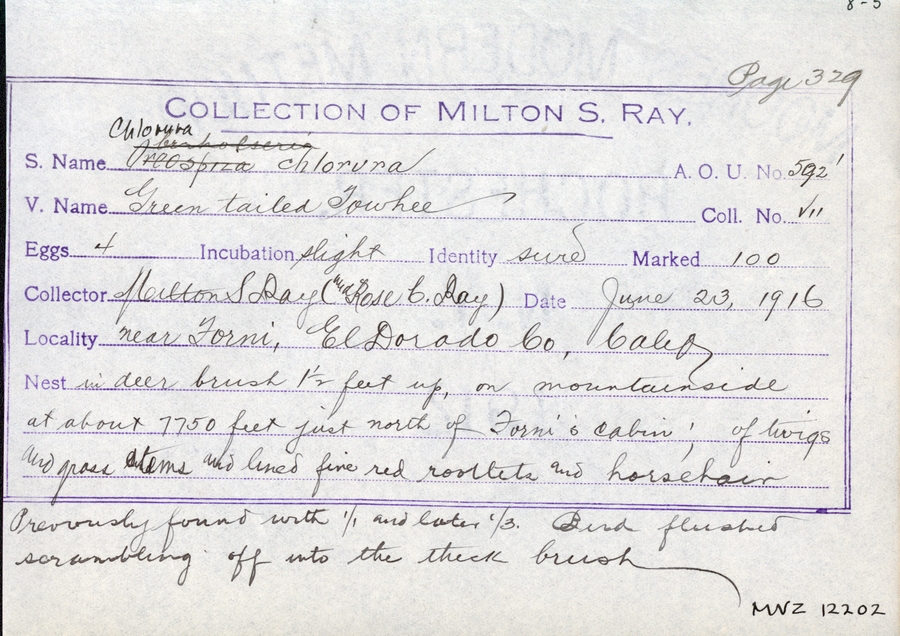 8-5
Page 329
COLLECTION OF MILTON S. RAY.
Chlorura
S. Name Oreospiza chlorura A. O. U. No. 592'
V. Name Green tailed Towhee Coll. No. VII
Eggs 4 Incubation slight Identity sure Marked 100
Collector Milton S Ray (and Rose C. Ray) Date June 23, 1916
Locality near Forni, El Dorado Co, Calif
Nest in deer brush 1½ feet up, on mountainside
at about 7750 feet just north of Forni's cabin, of twigs
and grass stems and lined fine red rootlets and horsehair
Previously found with 1/1 and later 1/3. Bird flushed
scrambling off into the thick brush
MVZ 12202